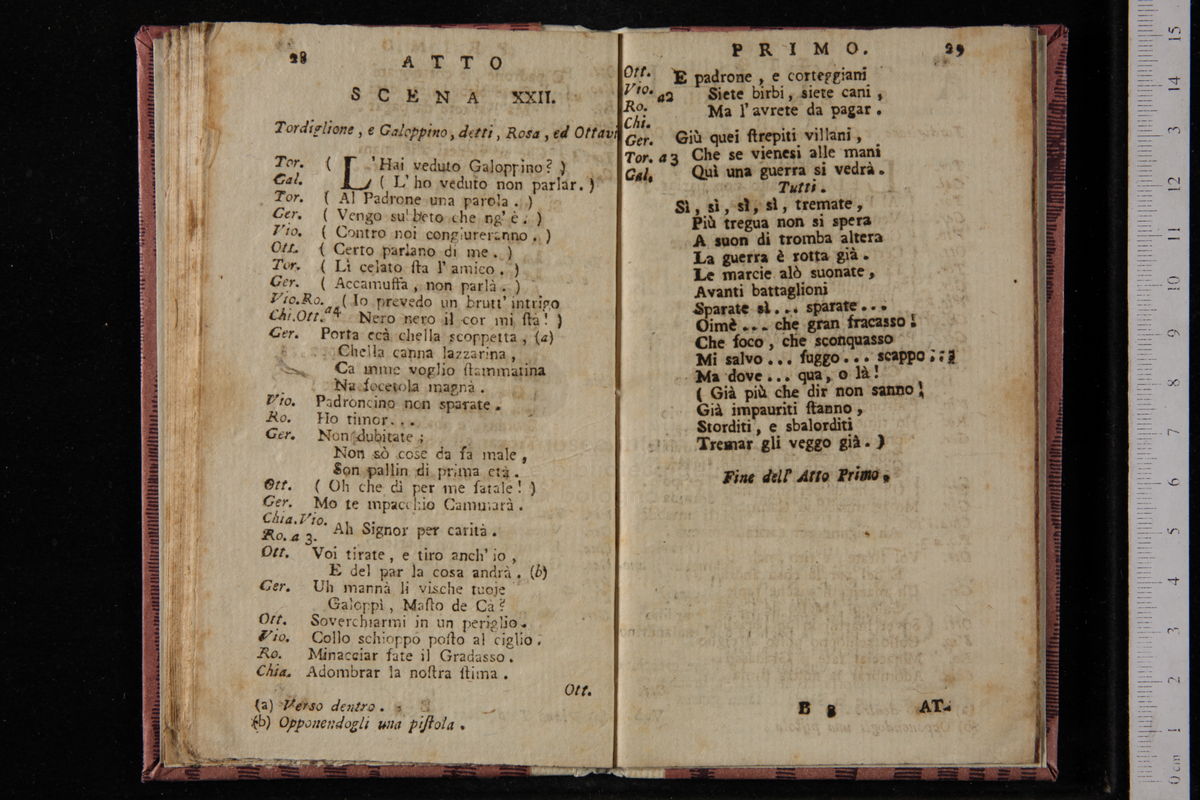 28
ATTO
SCENA XXII.
Tordiglione, e Galoppino, detti, Rosa, ed Ottavi
Tor. ( L'Hai veduto Galoppino? )
Gal. ( L' ho veduto non parlar. )
Tor. ( Al Padrone una parola. )
Ger. ( Vengo subbeto che ng' è. )
Vio. ( Contro noi congiureranno. )
Ott. ( Certo parlano di me. )
Tor. ( Lì celato ſta l' amico. )
Ger. ( Accamuffa, non parlà. )
Vio.Ro. ( Io prevedo un brutt' intrigo
Chi.Ott. a4 Nero nero il cor mi ſta! )
Ger. Porta ccà chella scoppetta, (a)
Chella canna lazzarina,
Ca mme voglio ſtammatina
Na focetola magnà.
Vio. Padroncino non sparate.
Ro. Ho timor...
Ger. Non dubitate;
Non sò cose da fa male,
Son pallin di prima età.
Ott. ( Oh che dì per me fatale! )
Ger. Mo te mpacchio Cammarà.
Chia.Vio.
Ro. a 3. Ah Signor per carità.
Ott. Voi tirate, e tiro anch' io,
E del par la cosa andrà. (b)
Ger. Uh mannà li vische tuoje
Galoppì, Maſto de Cà?
Ott. Soverchiarmi in un periglio.
Vio. Collo schioppo poſto al ciglio.
Ro. Minacciar fate il Gradasso.
Chia. Adombrar la noſtra ſtima.
Ott.
(a) Verso dentro.
(b) Opponendogli una piſtola.
PRIMO. 29
Ott. E padrone, e corteggiani
Vio. a2 Siete birbi, siete cani,
Ro. Ma l' avrete da pagar.
Chi.
Ger. Giù quei ſtrepiti villani,
Tor. a 3 Che se vienesi alle mani
Gal. Quì una guerra si vedrà.
Tutti.
Sì, sì, sì, sì, tremate,
Più tregua non si spera
A suon di tromba altera
La guerra è rotta già.
Le marcie alò suonate,
Avanti battaglioni
Sparate sì... sparate...
Oimè... che gran fracasso!
Che foco, che sconquasso
Mi salvo... fuggo... scappo...
Ma dove... qua, o là!
( Già più che dir non sanno!
Già impauriti ſtanno,
Storditi, e sbalorditi
Tremar gli veggo già. )
Fine dell' Atto Primo.
B 3 AT-